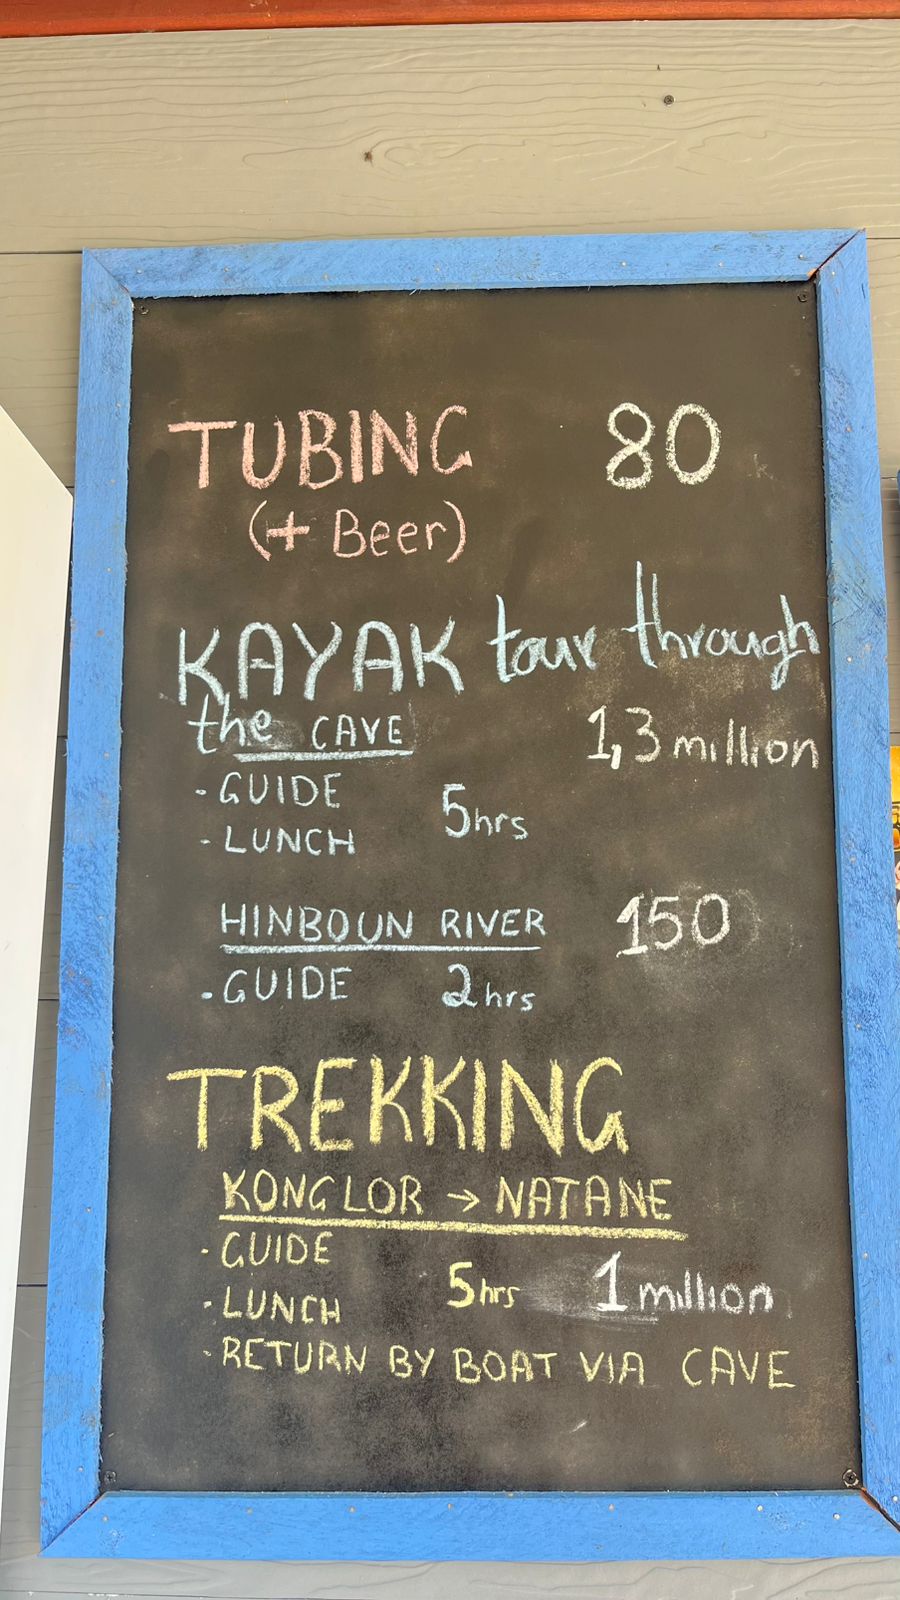 TUBING 80
(+ Beer)
KAYAK tour through
the CAVE 1,3 million
- GUIDE
5hrs
- LUNCH
HINBOUN RIVER 150
- GUIDE 2hrs
TREKKING
KONGLOR → NATANE
- GUIDE
5hrs 1 million
- LUNCH
- RETURN BY BOAT VIA CAVE